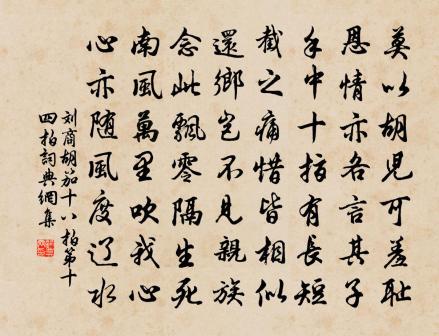 莫以胡儿可羞耻
恩情亦各言其子
手中十指有長短
截之痛惜皆相似
還鄉岂不見親族
念此飄零隔生死
南風萬里吹我心
心亦随風度辽水
刘商胡笳十八拍第十
四拍詞典網集